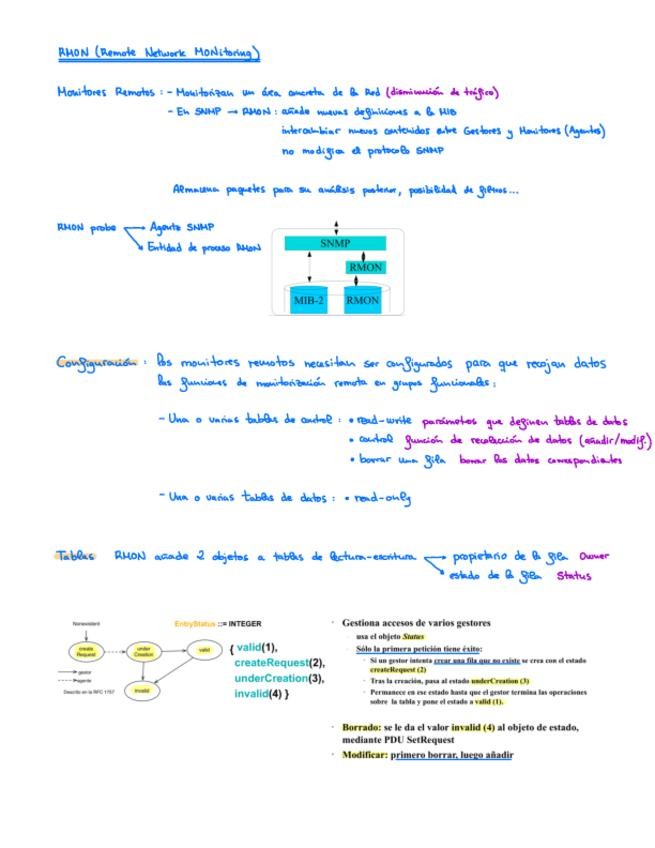 RMON (Remote Network MONitoring)
Monitores Remotos : - Monitorizan un área concreta de la Red (disminución de tráfico)
- En SNMP → RMON : añade nuevas definiciones a la MIB
intercambiar nuevos contenidos entre Gestores y Monitores (Agentes)
no modifica el protocolo SNMP
Almacena paquetes para su análisis posterior, posibilidad de filtros...
RMON probe → Agente SNMP
→ Entidad de proceso RMON
SNMP
RMON
MIB-2
RMON
Configuración : los monitores remotos necesitan ser configurados para que recojan datos
las funciones de monitorización remota en grupos funcionales :
- Una o varias tablas de control : • read-write parámetros que definen tablas de datos
• control función de recolección de datos (añadir/modif.)
• borrar una fila borrar los datos correspondientes
- Una o varias tablas de datos : • read-only
Tablas RMON añade 2 objetos a tablas de lectura-escritura → propietario de la fila Owner
→ estado de la fila Status
Nonexistent
create Request
under Creation
valid
invalid
gestor
agente
Descrito en la RFC 1757
EntryStatus ::= INTEGER
{ valid(1),
createRequest(2),
underCreation(3),
invalid(4) }
· Gestiona accesos de varios gestores
usa el objeto Status
Sólo la primera petición tiene éxito:
· Si un gestor intenta crear una fila que no existe se crea con el estado
createRequest (2)
· Tras la creación, pasa al estado underCreation (3)
· Permanece en ese estado hasta que el gestor termina las operaciones
sobre la tabla y pone el estado a valid (1).
· Borrado: se le da el valor invalid (4) al objeto de estado,
mediante PDU SetRequest
· Modificar: primero borrar, luego añadir